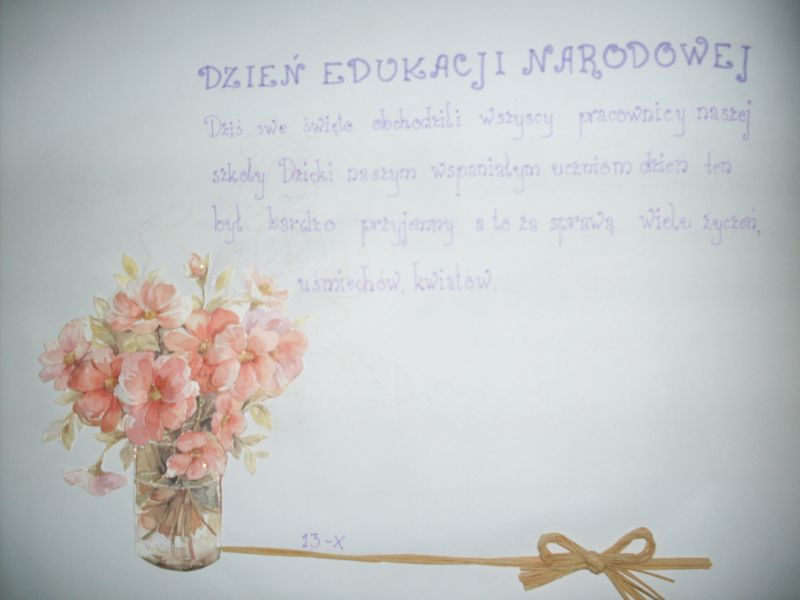 DZIEŃ EDUKACJI NARODOWEJ
Dziś swe święto obchodzili wszyscy pracownicy naszej
szkoły. Dzięki naszym wspaniałym uczniom dzień ten
był bardzo przyjemny a to za sprawą wielu życzeń,
uśmiechów, kwiatów.
13-X